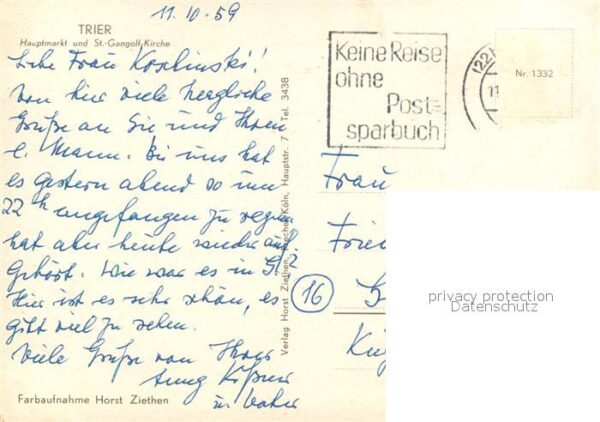 11.10.59
TRIER
Hauptmarkt und St.-Gangolf-Kirche
Liebe Frau Koslinski!
Von hier viele herzliche
Grüße an Sie und Ihren
l. Mann. Bei uns hat
es gestern abend so um
22 h angefangen zu regnen
hat aber heute wieder auf-
gehört. Wie war es in Gl?
Hier ist es sehr schön, es
gibt viel zu sehen.
Viele Grüße von Ihrer
u. Vater
Farbaufnahme Horst Ziethen
Verlag Horst Ziethen, Köln, Hauptstr. 7 Tel. 3438
Keine Reise
ohne
Post-
sparbuch
(22
11
Nr. 1332
Frau
16
privacy protection
Datenschutz